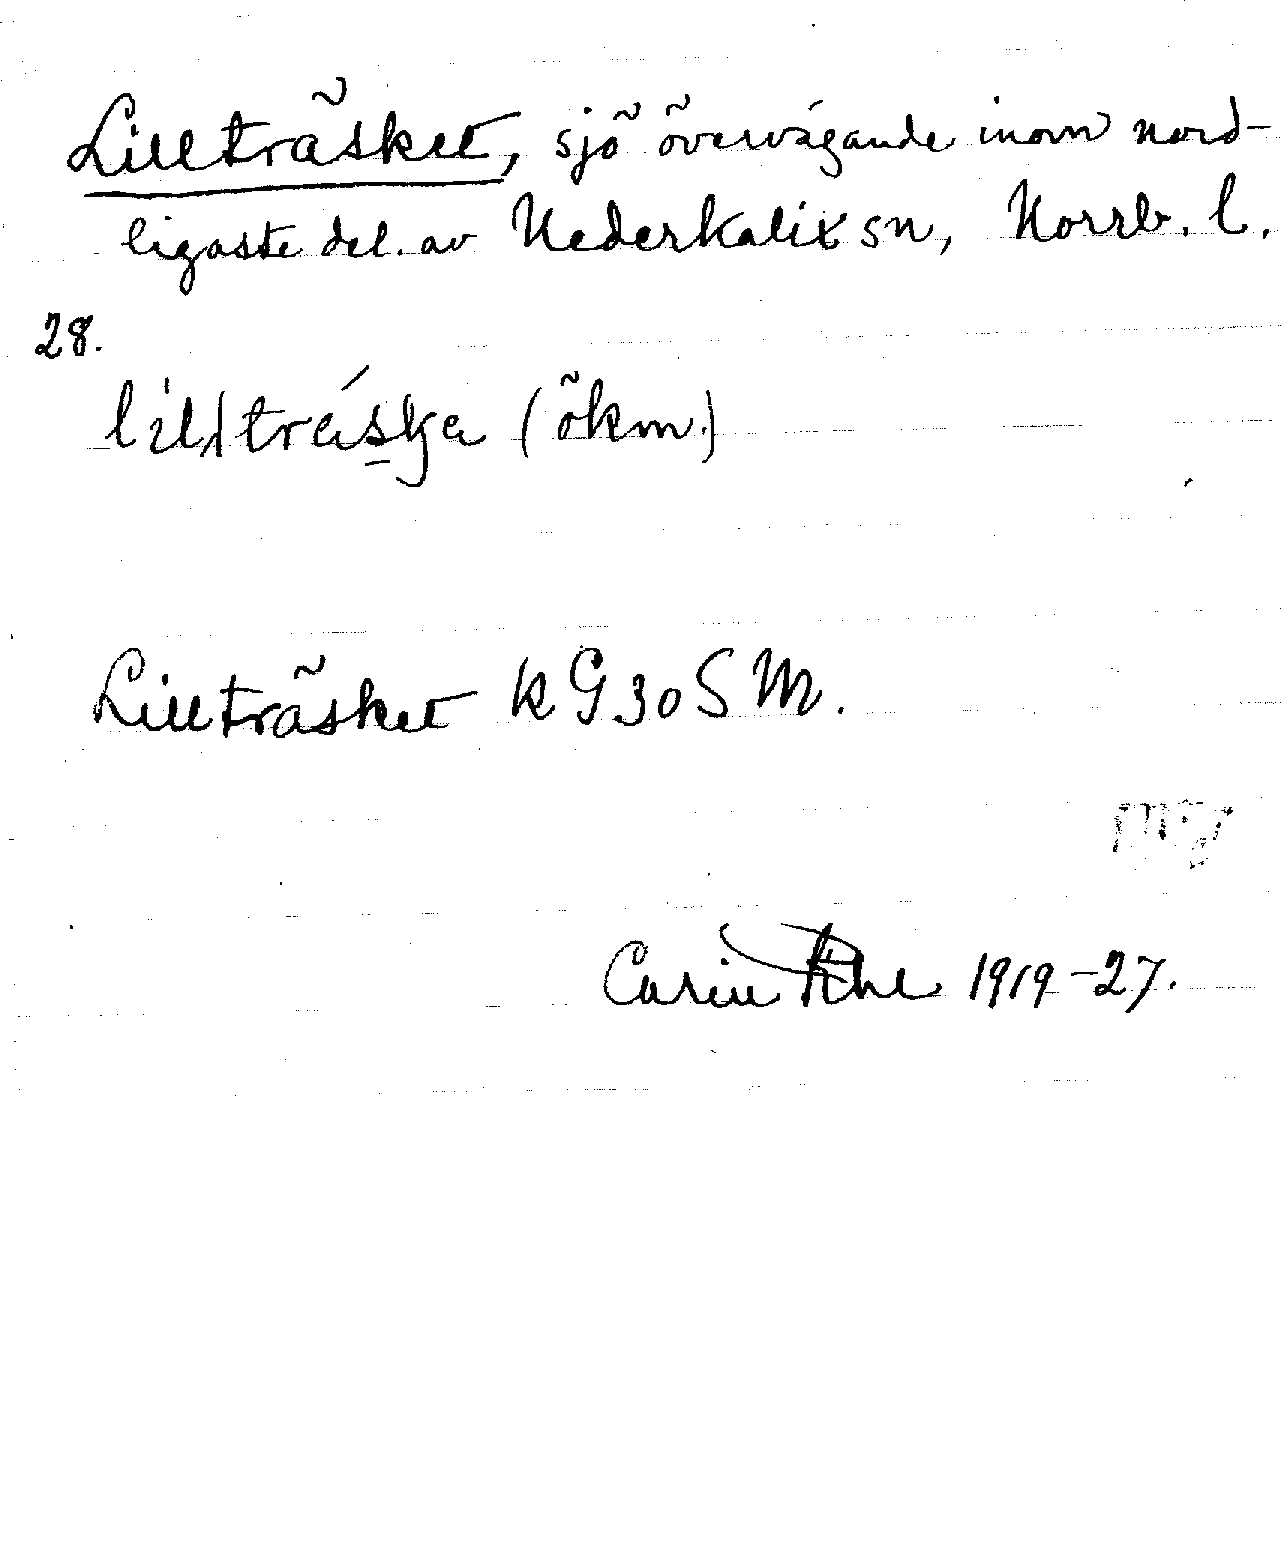 Lillträsket, sjö övervägande inom nord-
ligaste del. av Nederkalix sn, Norrb. l.
28.
(ökm.)
Lillträsket kG30SM.
Carin Pihl 1919-27.